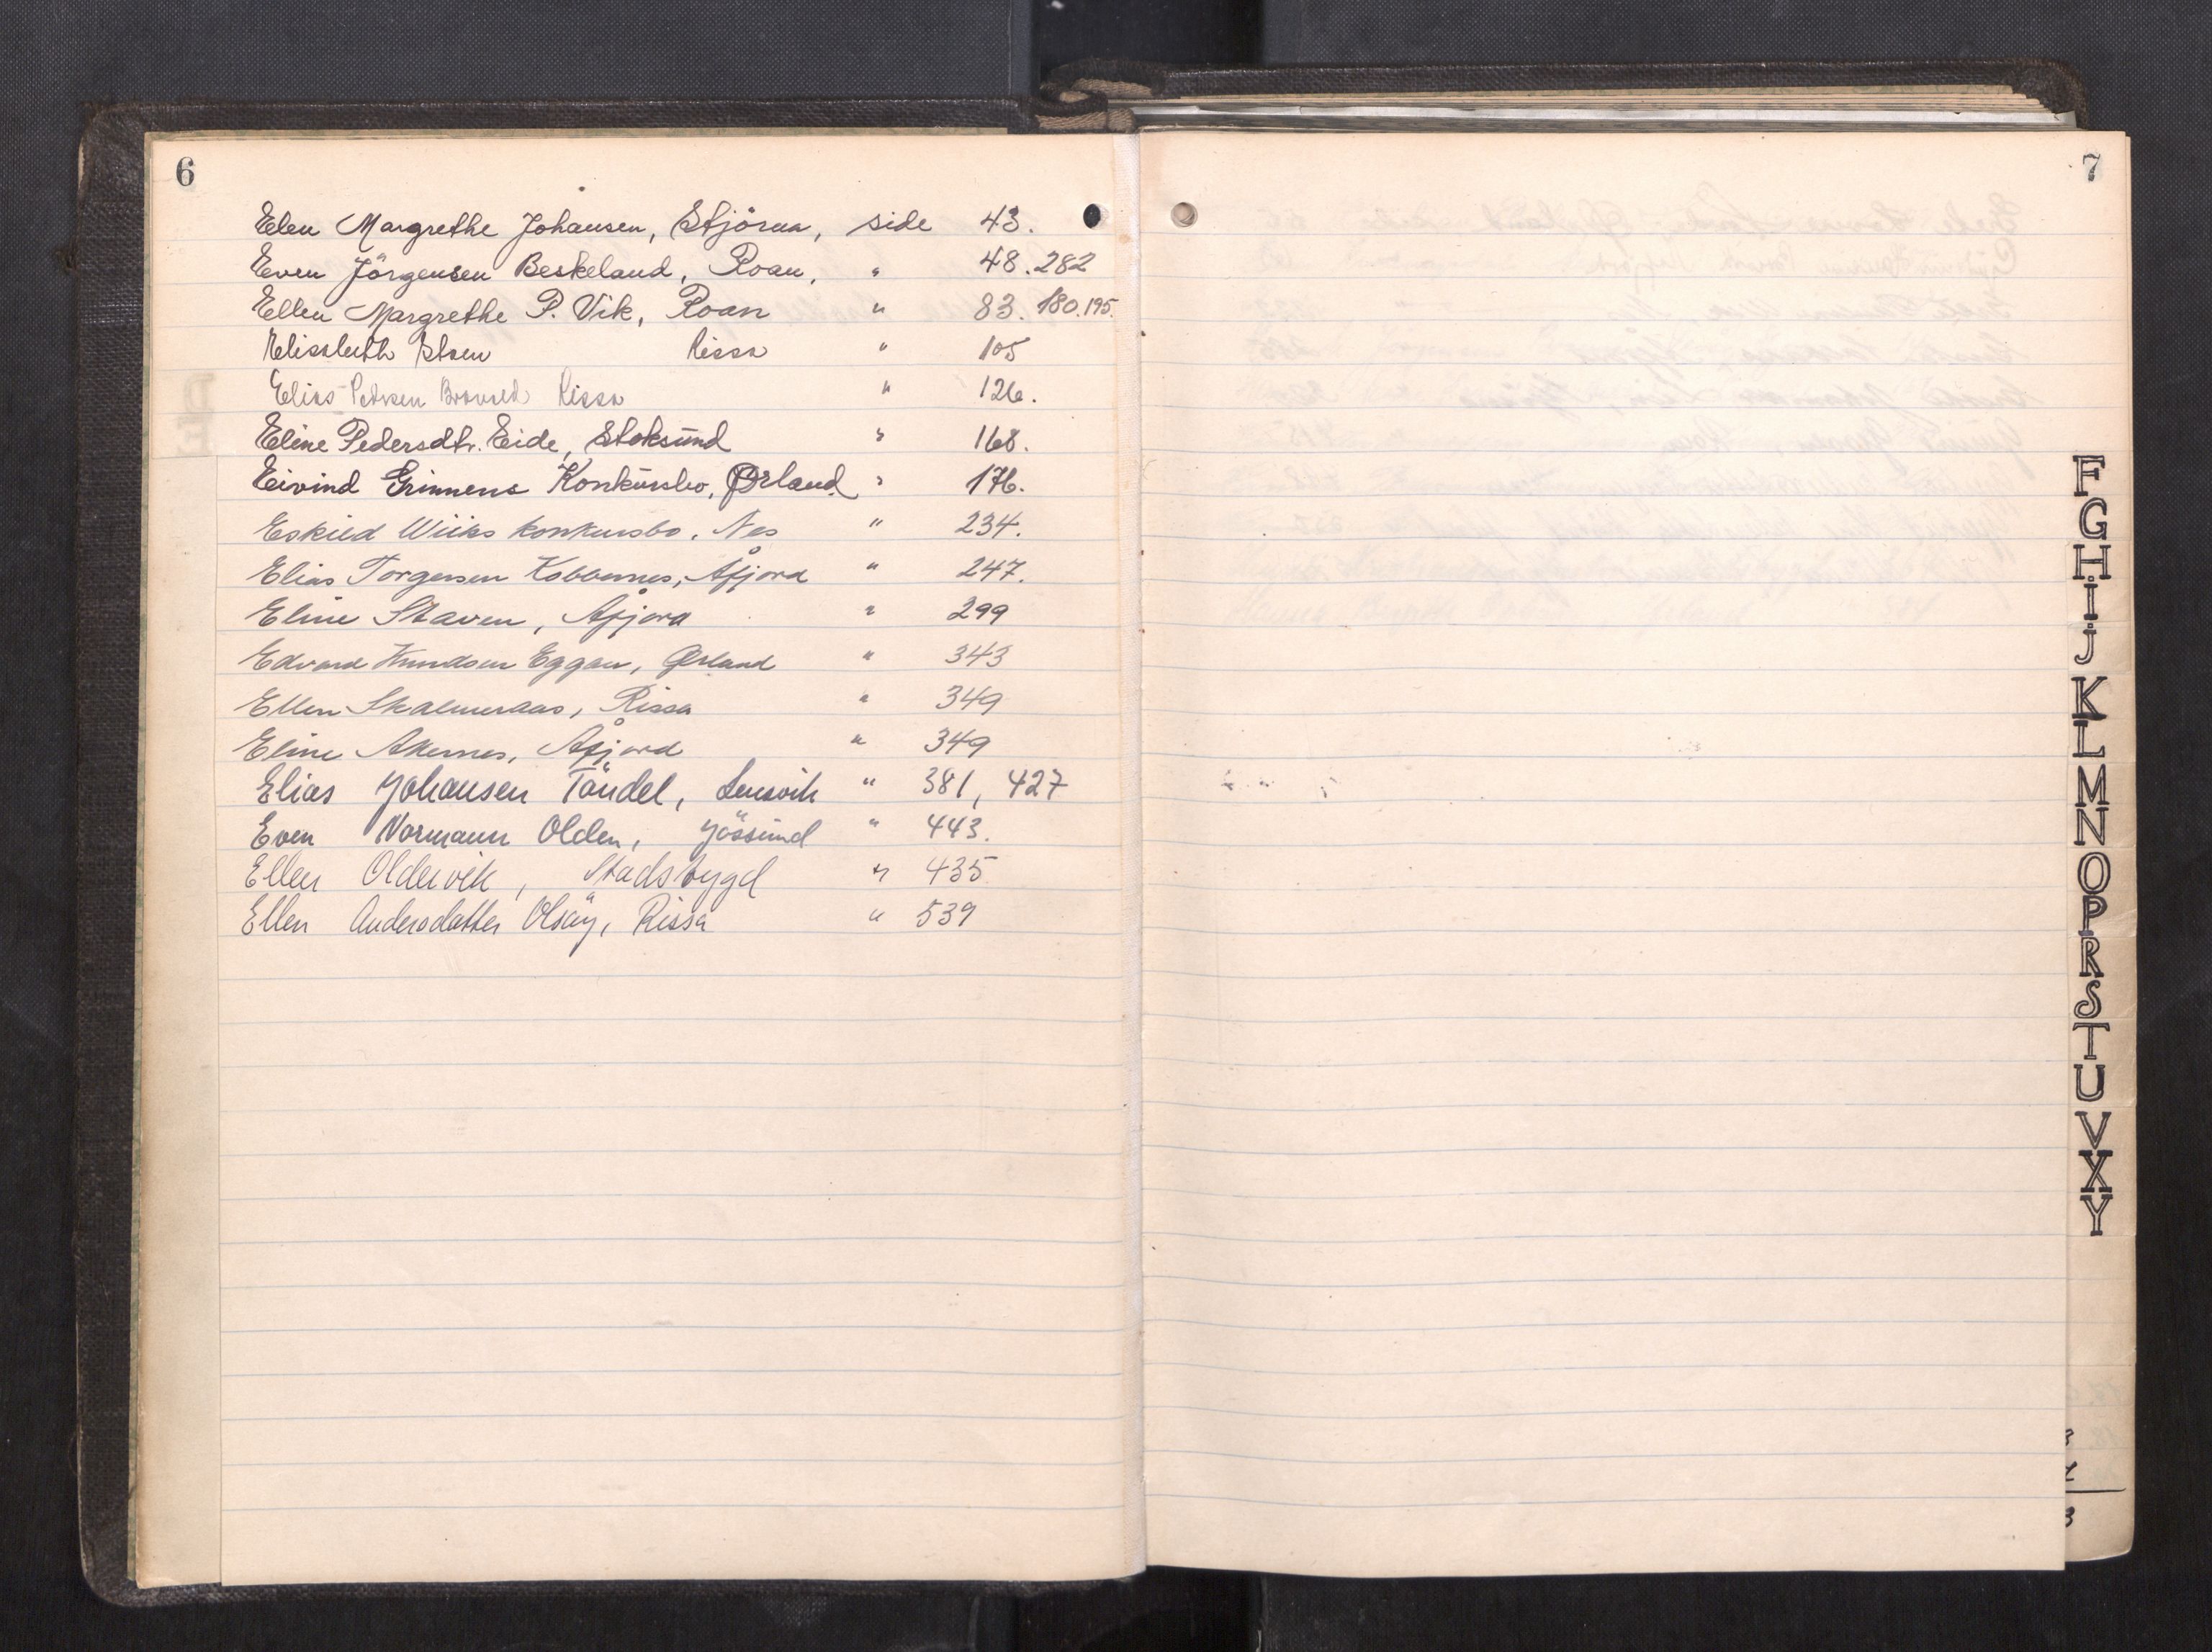 6
Elen Margrethe Johansen, Stjörna, side 43.
Even Jörgensen Beskeland, Roan, " 48. 282
Ellen Margrethe P. Vik, Roan " 83. 180. 195.
Elisabeth Rissa " 105
Elias Pedersen Rissa " 126.
Eline Pedersdtr. Eide, Stoksund " 168.
Eivind Grinnens Konkursbo, Ørland. " 176.
Eskild Wiiks konkursbo, Nes " 234.
Elias Torgersen Kobbernes, Åfjord " 247.
Eline Staven, Åfjord " 299
Edvard Knudsen Eggan, Ørland " 343
Ellen Skalmeraas, Rissa " 349
Eline Akernes, Åfjord " 349
Elias Johansen Tändel, Lensvik " 381, 427
Even Normann Olden, Jössund " 443.
Ellen Oldervik, Stadsbygd " 435
Ellen Andersdatter Olsöy, Rissa " 539
7
F
G
H
I
J
K
L
M
N
O
P
R
S
T
U
V
X
Y